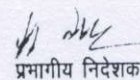 प्रभागीय निदेशक